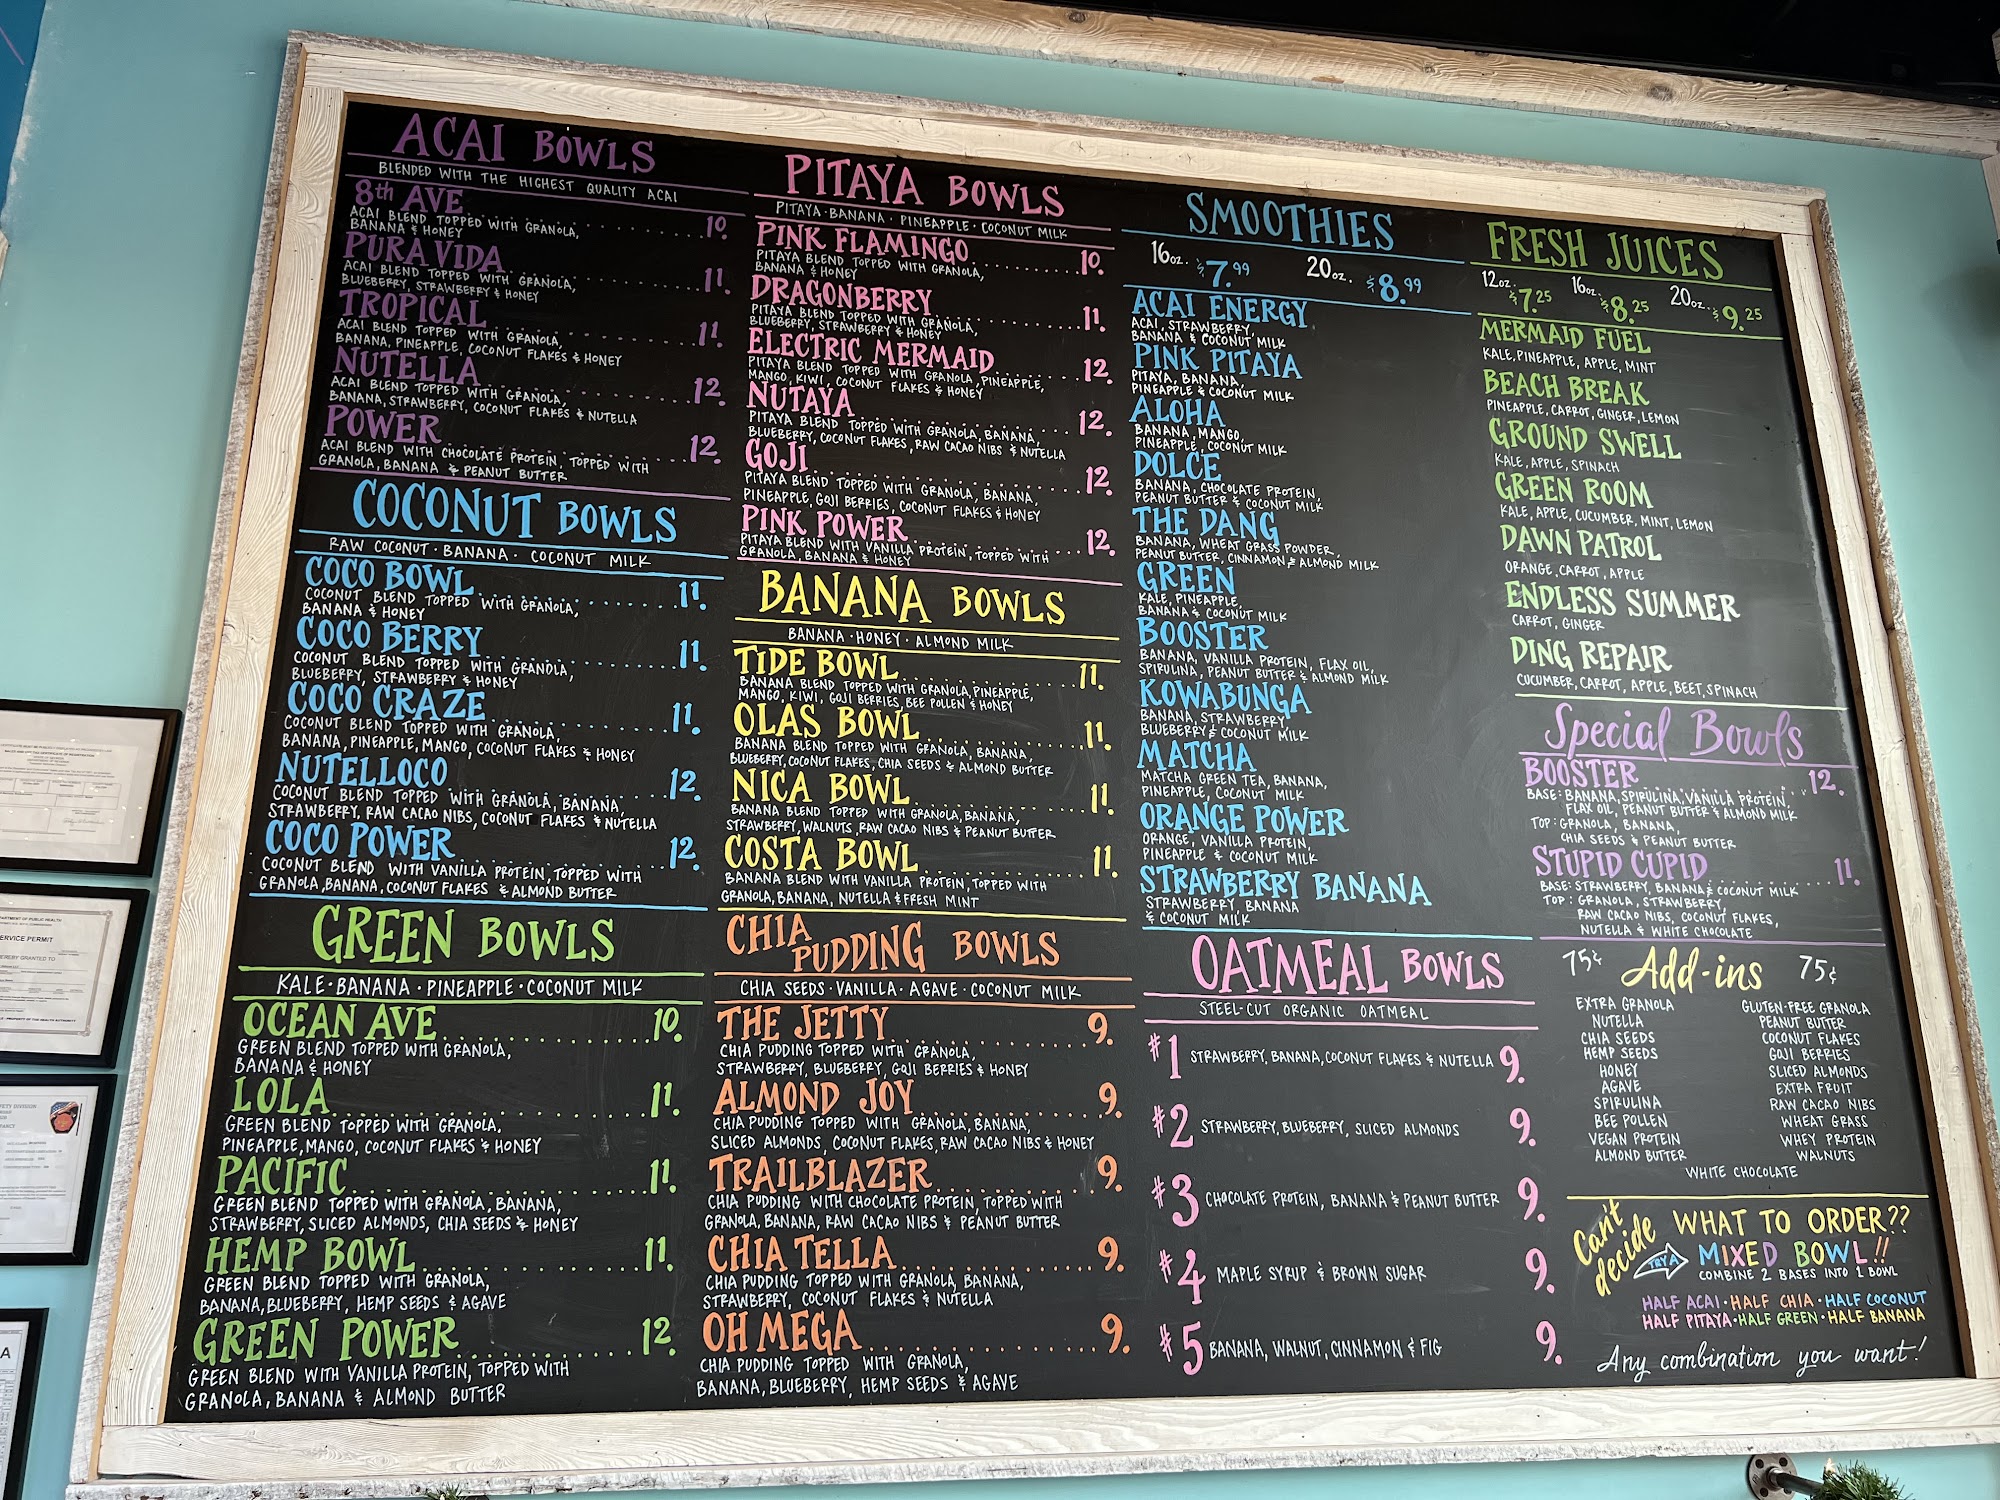 ACAI BOWLS
BLENDED WITH THE HIGHEST QUALITY ACAI
8th AVE 10.
ACAI BLEND TOPPED WITH GRANOLA,
BANANA & HONEY
PURA VIDA 11.
ACAI BLEND TOPPED WITH GRANOLA,
BLUEBERRY, STRAWBERRY & HONEY
TROPICAL 11.
ACAI BLEND TOPPED WITH GRANOLA,
BANANA, PINEAPPLE, COCONUT FLAKES & HONEY
NUTELLA 12.
ACAI BLEND TOPPED WITH GRANOLA,
BANANA, STRAWBERRY, COCONUT FLAKES & NUTELLA
POWER 12.
ACAI BLEND WITH CHOCOLATE PROTEIN, TOPPED WITH
GRANOLA, BANANA & PEANUT BUTTER
COCONUT BOWLS
RAW COCONUT · BANANA · COCONUT MILK
COCO BOWL 11.
COCONUT BLEND TOPPED WITH GRANOLA,
BANANA & HONEY
COCO BERRY 11.
COCONUT BLEND TOPPED WITH GRANOLA,
BLUEBERRY, STRAWBERRY & HONEY
COCO CRAZE 11.
COCONUT BLEND TOPPED WITH GRANOLA,
BANANA, PINEAPPLE, MANGO, COCONUT FLAKES & HONEY
NUTELLOCO 12.
COCONUT BLEND TOPPED WITH GRANOLA, BANANA,
STRAWBERRY, RAW CACAO NIBS, COCONUT FLAKES & NUTELLA
COCO POWER 12.
COCONUT BLEND WITH VANILLA PROTEIN, TOPPED WITH
GRANOLA, BANANA, COCONUT FLAKES & ALMOND BUTTER
GREEN BOWLS
KALE · BANANA · PINEAPPLE · COCONUT MILK
OCEAN AVE 10.
GREEN BLEND TOPPED WITH GRANOLA,
BANANA & HONEY
LOLA 11.
GREEN BLEND TOPPED WITH GRANOLA,
PINEAPPLE, MANGO, COCONUT FLAKES & HONEY
PACIFIC 11.
GREEN BLEND TOPPED WITH GRANOLA, BANANA,
STRAWBERRY, SLICED ALMONDS, CHIA SEEDS & HONEY
HEMP BOWL 11.
GREEN BLEND TOPPED WITH GRANOLA,
BANANA, BLUEBERRY, HEMP SEEDS & AGAVE
GREEN POWER 12.
GREEN BLEND WITH VANILLA PROTEIN, TOPPED WITH
GRANOLA, BANANA & ALMOND BUTTER
PITAYA BOWLS
PITAYA · BANANA · PINEAPPLE · COCONUT MILK
PINK FLAMINGO 10.
PITAYA BLEND TOPPED WITH GRANOLA,
BANANA & HONEY
DRAGONBERRY 11.
PITAYA BLEND TOPPED WITH GRANOLA,
BLUEBERRY, STRAWBERRY & HONEY
ELECTRIC MERMAID 12.
PITAYA BLEND TOPPED WITH GRANOLA, PINEAPPLE,
MANGO, KIWI, COCONUT FLAKES & HONEY
NUTAYA 12.
PITAYA BLEND TOPPED WITH GRANOLA, BANANA,
BLUEBERRY, COCONUT FLAKES, RAW CACAO NIBS & NUTELLA
GOJI 12.
PITAYA BLEND TOPPED WITH GRANOLA, BANANA,
PINEAPPLE, GOJI BERRIES, COCONUT FLAKES & HONEY
PINK POWER 12.
PITAYA BLEND WITH VANILLA PROTEIN, TOPPED WITH
GRANOLA, BANANA & HONEY
BANANA BOWLS
BANANA · HONEY · ALMOND MILK
TIDE BOWL 11.
BANANA BLEND TOPPED WITH GRANOLA, PINEAPPLE,
MANGO, KIWI, GOJI BERRIES, BEE POLLEN & HONEY
OLAS BOWL 11.
BANANA BLEND TOPPED WITH GRANOLA, BANANA,
BLUEBERRY, COCONUT FLAKES, CHIA SEEDS & ALMOND BUTTER
NICA BOWL 11.
BANANA BLEND TOPPED WITH GRANOLA, BANANA,
STRAWBERRY, WALNUTS, RAW CACAO NIBS & PEANUT BUTTER
COSTA BOWL 11.
BANANA BLEND WITH VANILLA PROTEIN, TOPPED WITH
GRANOLA, BANANA, NUTELLA & FRESH MINT
CHIA PUDDING BOWLS
CHIA SEEDS · VANILLA · AGAVE · COCONUT MILK
THE JETTY 9.
CHIA PUDDING TOPPED WITH GRANOLA,
STRAWBERRY, BLUEBERRY, GOJI BERRIES & HONEY
ALMOND JOY 9.
CHIA PUDDING TOPPED WITH GRANOLA, BANANA,
SLICED ALMONDS, COCONUT FLAKES, RAW CACAO NIBS & HONEY
TRAILBLAZER 9.
CHIA PUDDING WITH CHOCOLATE PROTEIN, TOPPED WITH
GRANOLA, BANANA, RAW CACAO NIBS & PEANUT BUTTER
CHIA TELLA 9.
CHIA PUDDING TOPPED WITH GRANOLA, BANANA,
STRAWBERRY, COCONUT FLAKES & NUTELLA
OH MEGA 9.
CHIA PUDDING TOPPED WITH GRANOLA,
BANANA, BLUEBERRY, HEMP SEEDS & AGAVE
SMOOTHIES
16oz. $7.99 20oz. $8.99
ACAI ENERGY
ACAI, STRAWBERRY,
BANANA & COCONUT MILK
PINK PITAYA
PITAYA, BANANA,
PINEAPPLE & COCONUT MILK
ALOHA
BANANA, MANGO,
PINEAPPLE, COCONUT MILK
DOLCE
BANANA, CHOCOLATE PROTEIN,
PEANUT BUTTER & COCONUT MILK
THE DANG
BANANA, WHEAT GRASS POWDER,
PEANUT BUTTER, CINNAMON & ALMOND MILK
GREEN
KALE, PINEAPPLE,
BANANA & COCONUT MILK
BOOSTER
BANANA, VANILLA PROTEIN, FLAX OIL,
SPIRULINA, PEANUT BUTTER & ALMOND MILK
KOWABUNGA
BANANA, STRAWBERRY,
BLUEBERRY & COCONUT MILK
MATCHA
MATCHA GREEN TEA, BANANA,
PINEAPPLE, COCONUT MILK
ORANGE POWER
ORANGE, VANILLA PROTEIN,
PINEAPPLE & COCONUT MILK
STRAWBERRY BANANA
STRAWBERRY, BANANA
& COCONUT MILK
OATMEAL BOWLS
STEEL-CUT ORGANIC OATMEAL
#1 STRAWBERRY, BANANA, COCONUT FLAKES & NUTELLA 9.
#2 STRAWBERRY, BLUEBERRY, SLICED ALMONDS 9.
#3 CHOCOLATE PROTEIN, BANANA & PEANUT BUTTER 9.
#4 MAPLE SYRUP & BROWN SUGAR 9.
#5 BANANA, WALNUT, CINNAMON & FIG 9.
FRESH JUICES
12oz. $7.25 16oz. $8.25 20oz. $9.25
MERMAID FUEL
KALE, PINEAPPLE, APPLE, MINT
BEACH BREAK
PINEAPPLE, CARROT, GINGER, LEMON
GROUND SWELL
KALE, APPLE, SPINACH
GREEN ROOM
KALE, APPLE, CUCUMBER, MINT, LEMON
DAWN PATROL
ORANGE, CARROT, APPLE
ENDLESS SUMMER
CARROT, GINGER
DING REPAIR
CUCUMBER, CARROT, APPLE, BEET, SPINACH
Special Bowls
BOOSTER 12.
BASE: BANANA, SPIRULINA, VANILLA PROTEIN,
FLAX OIL, PEANUT BUTTER & ALMOND MILK
TOP: GRANOLA, BANANA,
CHIA SEEDS & PEANUT BUTTER
STUPID CUPID 11.
BASE: STRAWBERRY, BANANA & COCONUT MILK
TOP: GRANOLA, STRAWBERRY,
RAW CACAO NIBS, COCONUT FLAKES,
NUTELLA & WHITE CHOCOLATE
75¢ Add-ins 75¢
EXTRA GRANOLA GLUTEN-FREE GRANOLA
NUTELLA PEANUT BUTTER
CHIA SEEDS COCONUT FLAKES
HEMP SEEDS GOJI BERRIES
HONEY SLICED ALMONDS
AGAVE EXTRA FRUIT
SPIRULINA RAW CACAO NIBS
BEE POLLEN WHEAT GRASS
VEGAN PROTEIN WHEY PROTEIN
ALMOND BUTTER WALNUTS
WHITE CHOCOLATE
Can't decide WHAT TO ORDER??
TRY A MIXED BOWL!!
COMBINE 2 BASES INTO 1 BOWL
HALF ACAI · HALF CHIA · HALF COCONUT
HALF PITAYA · HALF GREEN · HALF BANANA
Any combination you want!